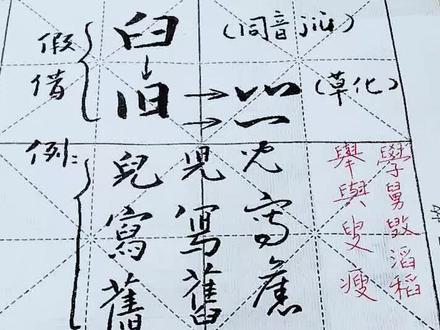 假借 臼 (同音jiù)
旧 (草化)
例: 兒 児
寫 寫
舊 舊 舊
學舅毁滔稻
舉與叟瘦